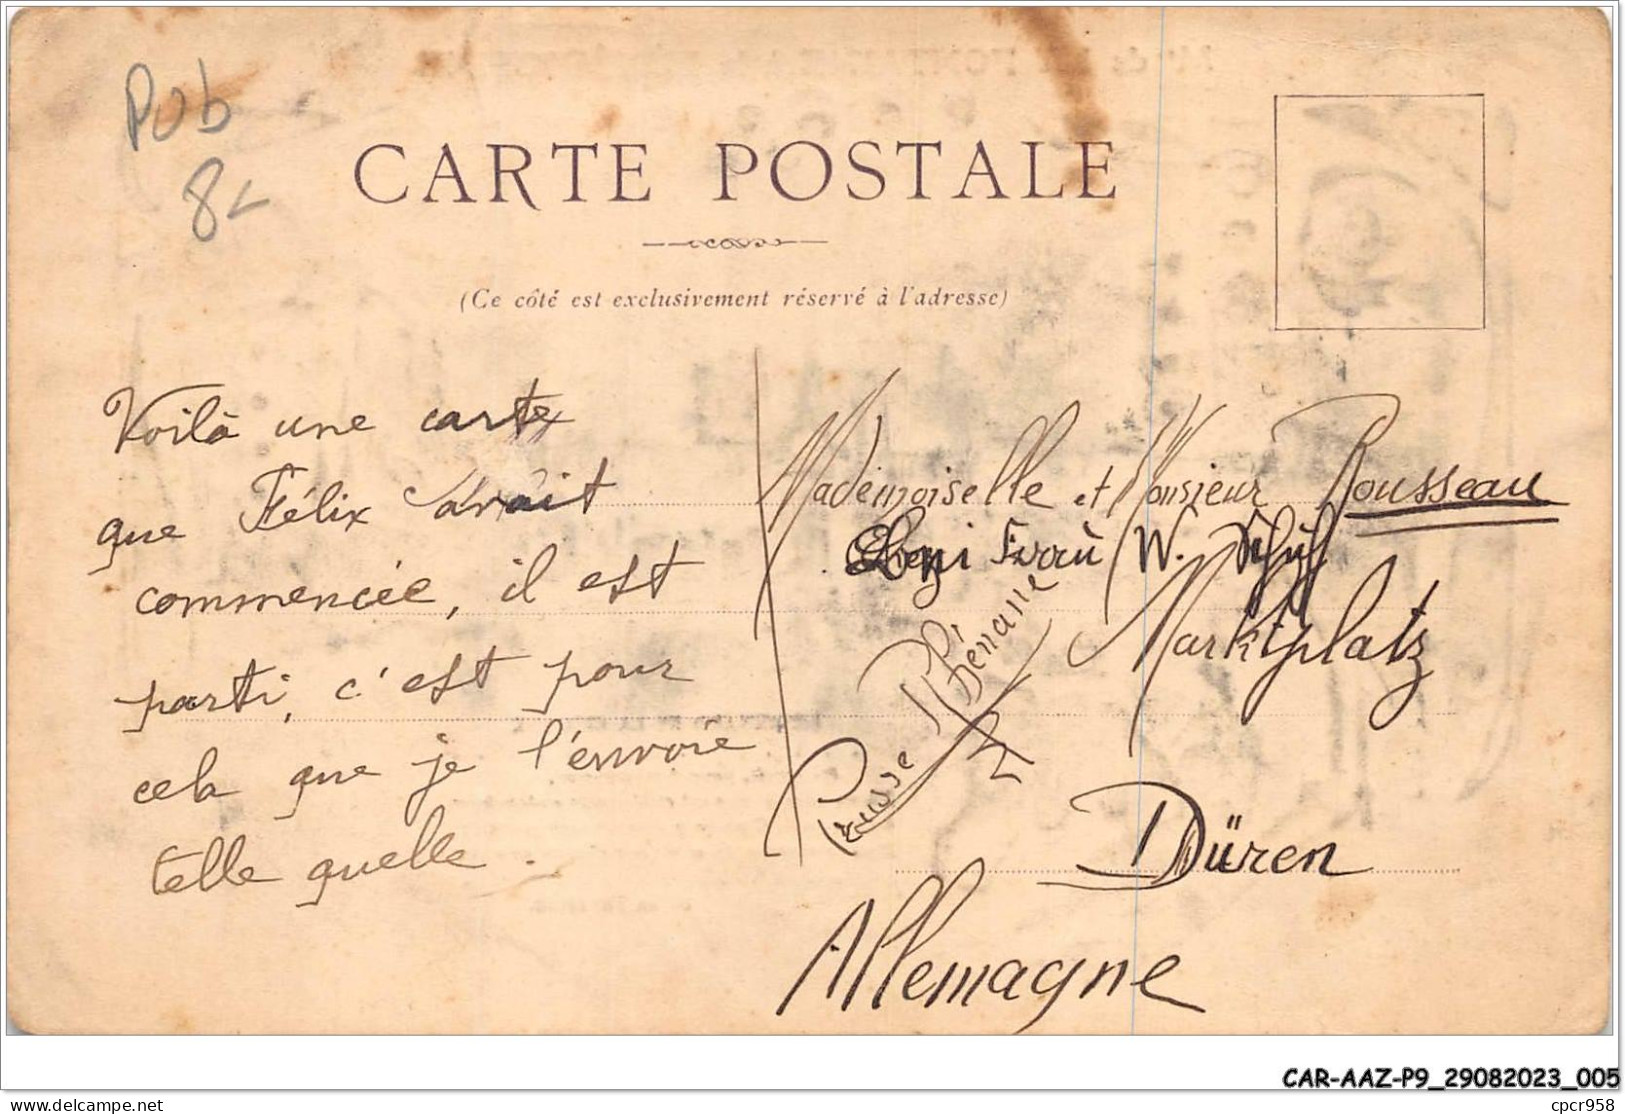 Pob
8
CARTE POSTALE
(Ce côté est exclusivement réservé à l'adresse)
Voilà une carte
que Félix avait
commencée, il est
parti, c'est pour
cela que je l'envoie
telle quelle.
Mademoiselle et Monsieur Rousseau
W.
Marktplatz
Prusse Rhénane
Düren
Allemagne
CAR-AAZ-P9_29082023_005
www.delcampe.net
cpcr958